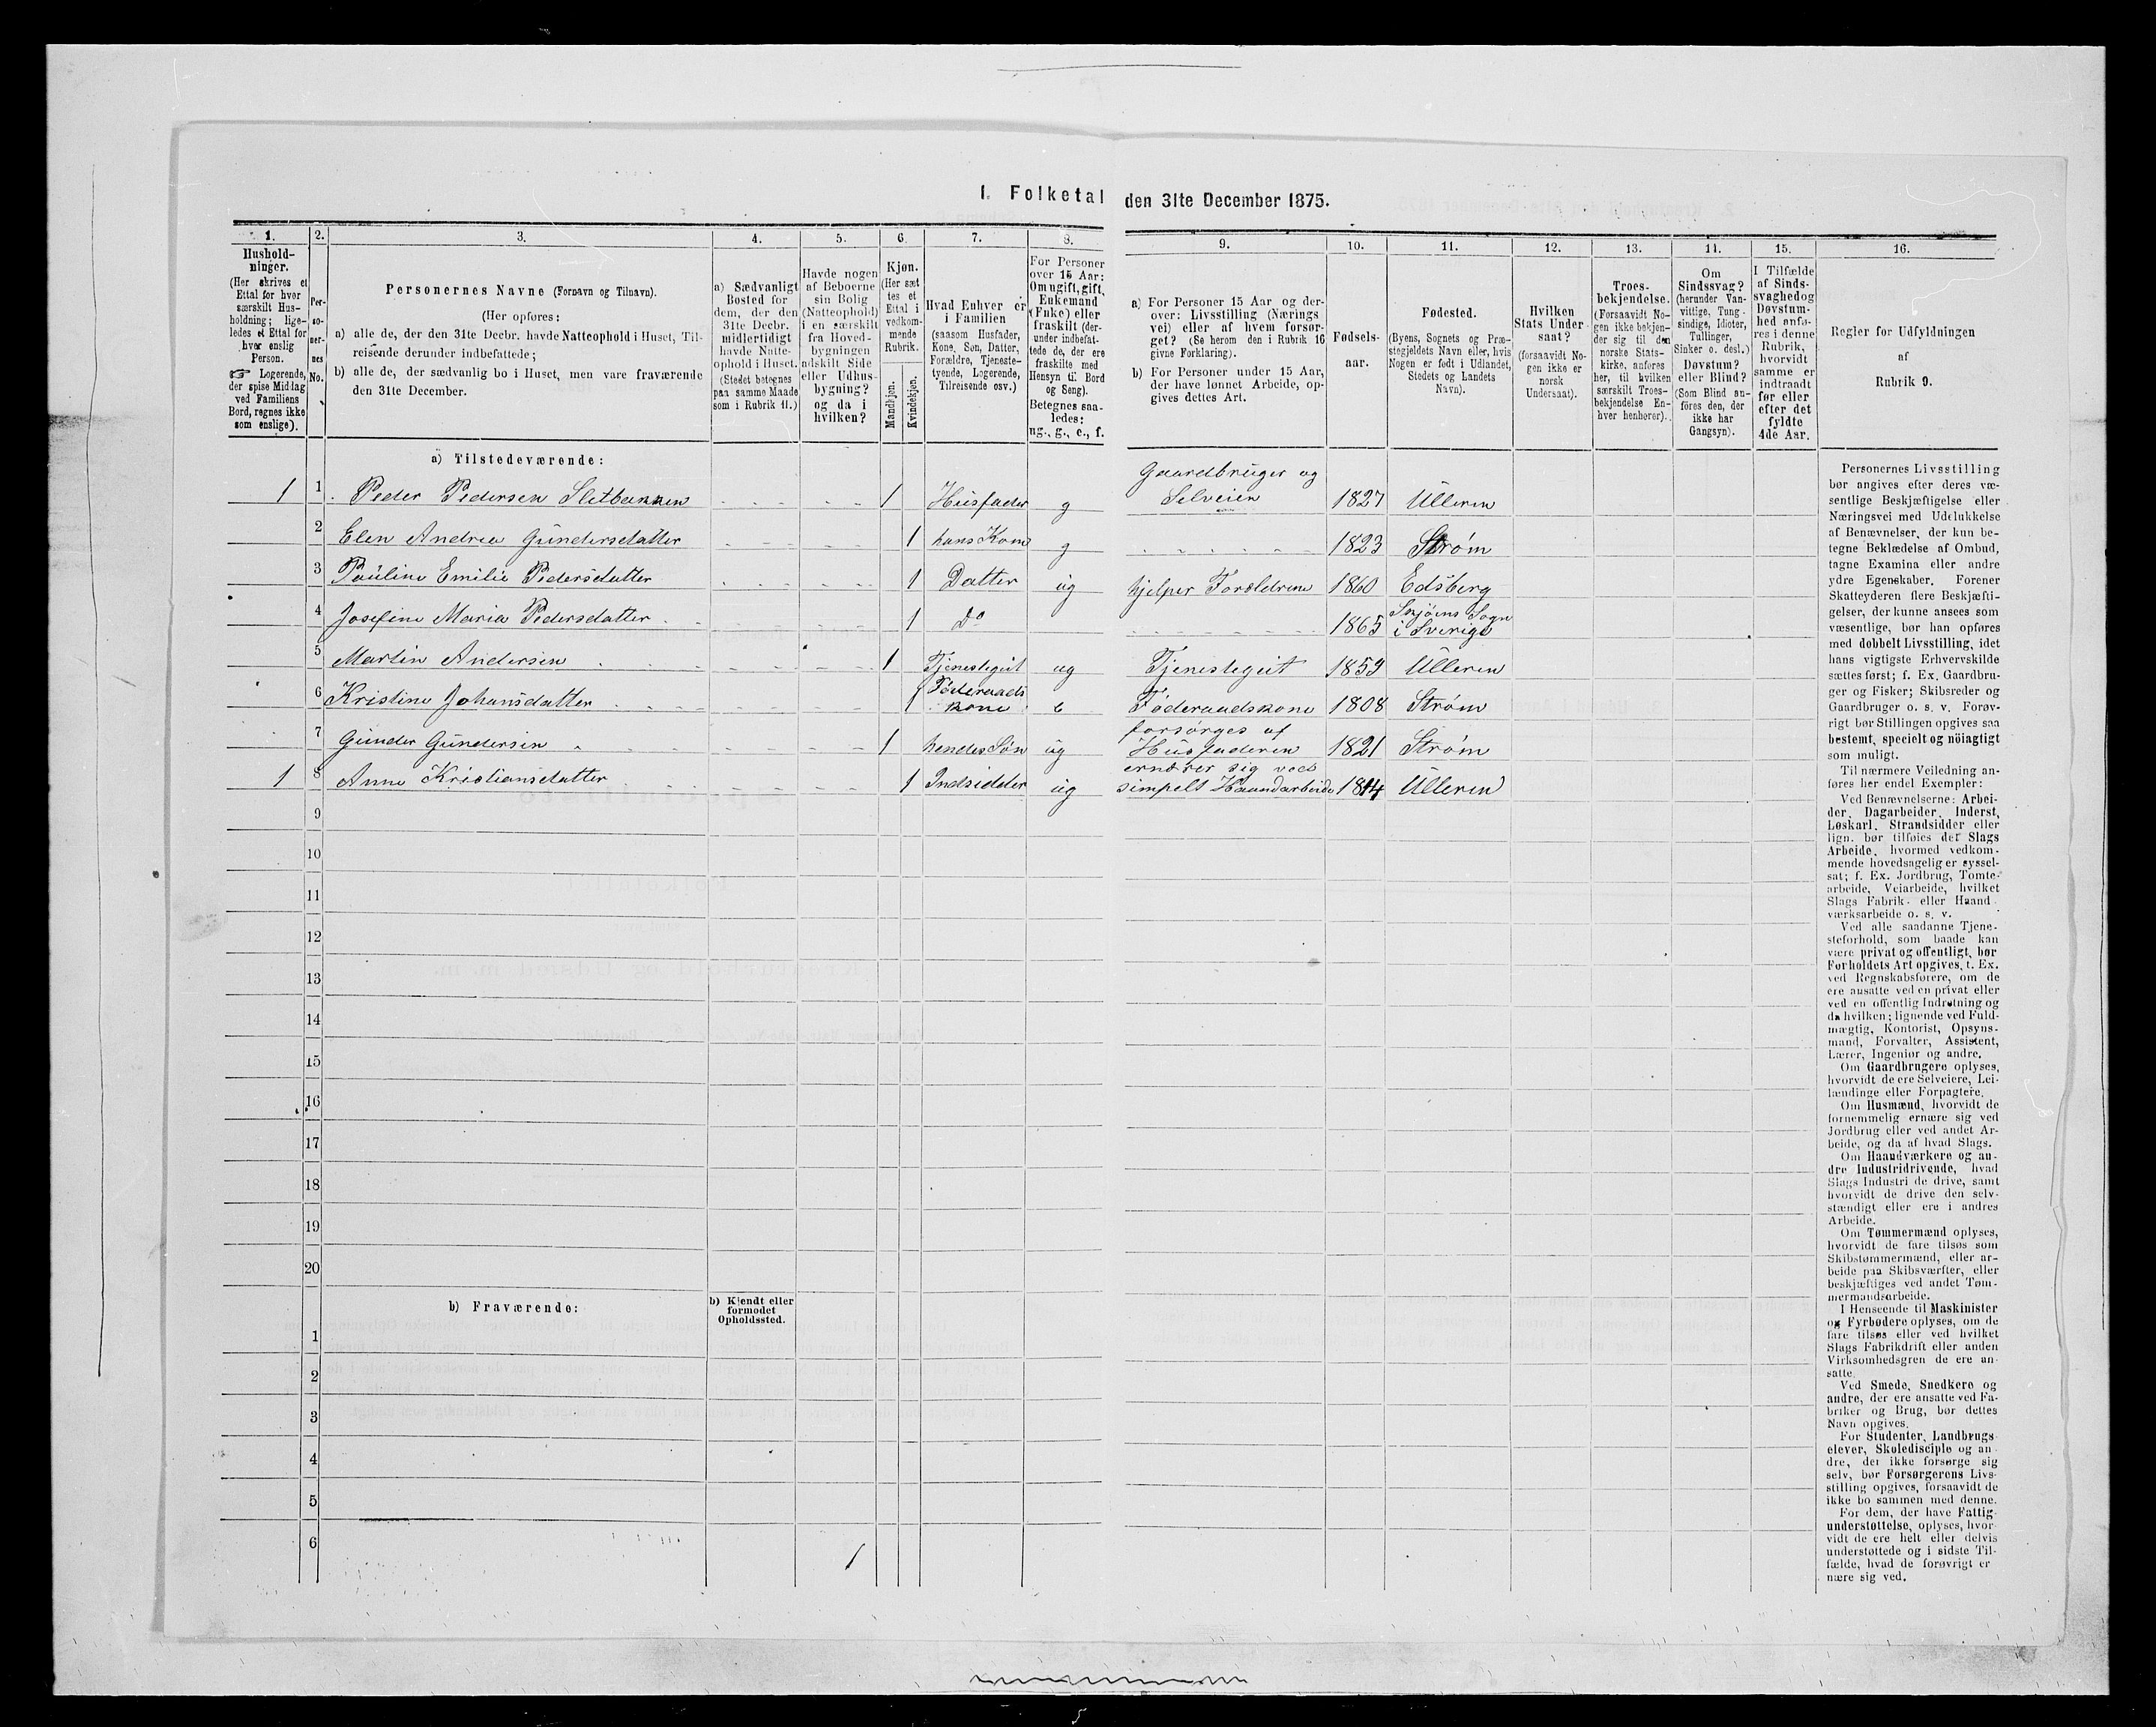 I. Folketal den 31te December 1875.
1.
Hushold-
ninger.
(Her skrives et
Ettal for hver
særskilt Hus-
holdning; lige-
ledes et Ettal for
hver enslig
Person.
☞ Logerende,
der spise Middag
ved Familiens
Bord, regnes ikke
som enslige).
2.
Per-
so-
ner-
nes
No.
3.
Personernes Navne (Fornavn og Tilnavn).
(Her opføres:
a) alle de, der den 31te Decbr. havde Natteophold i Huset, Til-
reisende derunder indbefattede;
b) alle de, der sædvanlig bo i Huset, men vare fraværende
den 31te December.
4.
a) Sædvanligt
Bosted for
dem, der den
31te Decbr.
midlertidigt
havde Natte-
ophold i Huset.
(Stedet betegnes
paa samme Maade
som i Rubrik 11.)
5.
Havde nogen
af Beboerne
sin Bolig
(Natteophold)
i en særskilt
fra Hoved-
bygningen
adskilt Side
eller Udhus-
bygning?
og da i
hvilken?
6.
Kjøn.
(Her sæt
tes et
Ettal i
vedkom-
mende
Rubrik.
Mandkjøn.
Kvindekjøn.
7.
Hvad Enhver er
i Familien
(saasom Husfader,
Kone, Søn, Datter,
Forældre, Tjeneste-
tyende, Logerende,
Tilreisende osv.)
8.
For Personer
over 15 Aar:
Om ugift, gift,
Enkemand
(Enke) eller
fraskilt (der-
under indbefat-
tede de, der ere
fraskilte med
Hensyn til Bord
og Seng).
Betegnes saa-
ledes:
ug., g., e., f.
9.
a) For Personer 15 Aar og der-
over: Livsstilling (Nærings
vei) eller af hvem forsør-
get? (Se herom den i Rubrik 16
givne Forklaring).
b) For Personer under 15 Aar,
der have lønnet Arbeide, op-
gives dettes Art.
10.
Fødsels-
aar.
11.
Fødested.
(Byens, Sognets og Præ-
stegjeldets Navn eller, hvis
Nogen er født i Udlandet,
Stedets og Landets
Navn).
12.
Hvilken
Stats Under-
saat?
(forsaavidt No-
gen ikke er
norsk
Undersaat).
13.
Troes-
bekjendelse.
(Forsaavidt No-
gen ikke bekjen-
der sig til den
norske Stats-
kirke, anføres
her, til hvilken
særskilt Troes-
bekjendelse En-
hver henhører).
14.
Om
Sindssvag?
(herunder Van-
vittige, Tung-
sindige, Idioter,
Tullinger,
Sinker o. desl.)
Døvstum?
eller Blind?
(Som Blind an-
føres den, der
ikke har
Gangsyn).
15.
I Tilfælde
af Sinds-
svaghed og
Døvstum-
hed anfø-
res i denne
Rubrik,
hvorvidt
samme er
indtraadt
før eller
efter det
fyldte
4de Aar.
16.
Regler for Udfyldningen
af
Rubrik 9.
a) Tilstedeværende:
1 1 Peder Pedersen Sletbakken 1 Husfader g Gaardbruger og Selveier 1827 Ulleren
2 Elen Andrea Gundersdatter 1 hans Kone g 1823 Strøm
3 Pauline Emilie Pedersdatter 1 Datter ug hjelper Foreldrene 1860 Edsberg
4 Josefine Maria Pedersdatter 1 Do 1865 Sogn i Sverige
5 Martin Andersen 1 Tjenestegut ug Tjenestegut 1859 Ulleren
6 Kristine Johansdatter 1 Føderaads kone e Føderaadskone 1808 Strøm
7 Gunder Gundersen 1 hendes Søn ug forsørges af Husfaderen 1821 Strøm
1 8 Anne Kristiansdatter 1 Indsidder ug ernærer sig ved simpelt Haandarbeide 1814 Ulleren
9
10
11
12
13
14
15
16
17
18
19
20
b) Fraværende:
b) Kjendt eller
formodet
Opholdssted.
1
2
3
4
5
6
Personernes Livsstilling
bør angives efter deres væ-
sentlige Beskjæftigelse eller
Næringsvei med Udelukkelse
af Benævnelser, der kun be-
tegne Beklædelse af Ombud,
tagne Examina eller andre
ydre Egenskaber. Forener
Skatteyderen flere Beskjæfti-
gelser, der kunne ansees som
væsentlige, bør han opføres
med dobbelt Livsstilling, idet
hans vigtigste Erhvervskilde
sættes først; f. Ex. Gaardbru-
ger og Fisker; Skibsreder og
Gaardbruger o. s. v. Forøv-
rigt bør Stillingen opgives saa
bestemt, specielt og nöiagtigt
som muligt.
Til nærmere Veiledning an-
føres her endel Exempler:
Ved Benævnelserne: Arbei-
der, Dagarbeider, Inderst,
Løskarl, Strandsidder eller
lign. bør tilføies det Slags
Arbeide, hvormed vedkom-
mende hovedsagelig er syssel-
sat; f. Ex. Jordbrug, Tomte-
arbeide, Veiarbeide, hvilket
Slags Fabrik- eller Haand
værksarbeide o. s. v.
Ved alle saadanne Tjene-
steforhold, som baade kan
være privat og offentligt, bør
Forholdets Art opgives, t. Ex.
ved Regnskabsførere, om de
ere ansatte ved en privat eller
ved en offentlig Indretning og
da hvilken; lignende ved Fuld-
mægtig, Kontorist, Opsyns-
mand, Forvalter, Assistent,
Lærer, Ingeniør og andre.
Om Gaardbrugere oplyses,
hvorvidt de ere Selveiere, Lei-
lændinge eller Forpagtere.
Om Husmænd, hvorvidt de
fornemmelig ernære sig ved
Jordbrug eller ved andet Ar-
beide, og da af hvad Slags.
Om Haandværkere og an-
dre Industridrivende, hvad
Slags Industri de drive, samt
hvorvidt de drive den selv-
stændigt eller ere i andres
Arbeide.
Om Tømmermænd oplyses,
hvorvidt de fare tilsøs som
Skibstømmermænd, eller ar-
beide paa Skibsværfter, eller
beskjæftiges ved andet Tøm-
mermandsarbeide.
I Henseende til Maskinister
og Fyrbødere oplyses, om de
fare tilsøs eller ved hvilket
Slags Fabrikdrift eller anden
Virksomhedsgren de ere an-
satte.
Ved Smede, Snedkere og
andre, der ere ansatte ved Fa-
briker og Brug, bør dettes
Navn opgives.
For Studenter, Landbrugs
elever, Skoledisciple og an
dre, der ikke forsørge sig
selv, bør Forsørgerens Livs-
stilling opgives, forsaavidt de
ikke bo sammen med denne.
For dem, der have Fattig-
understøttelse, oplyses, hvor-
vidt de ere helt eller delvis
understøttede og i sidste Til-
fælde, hvad de forøvrigt er
nære sig ved.
5